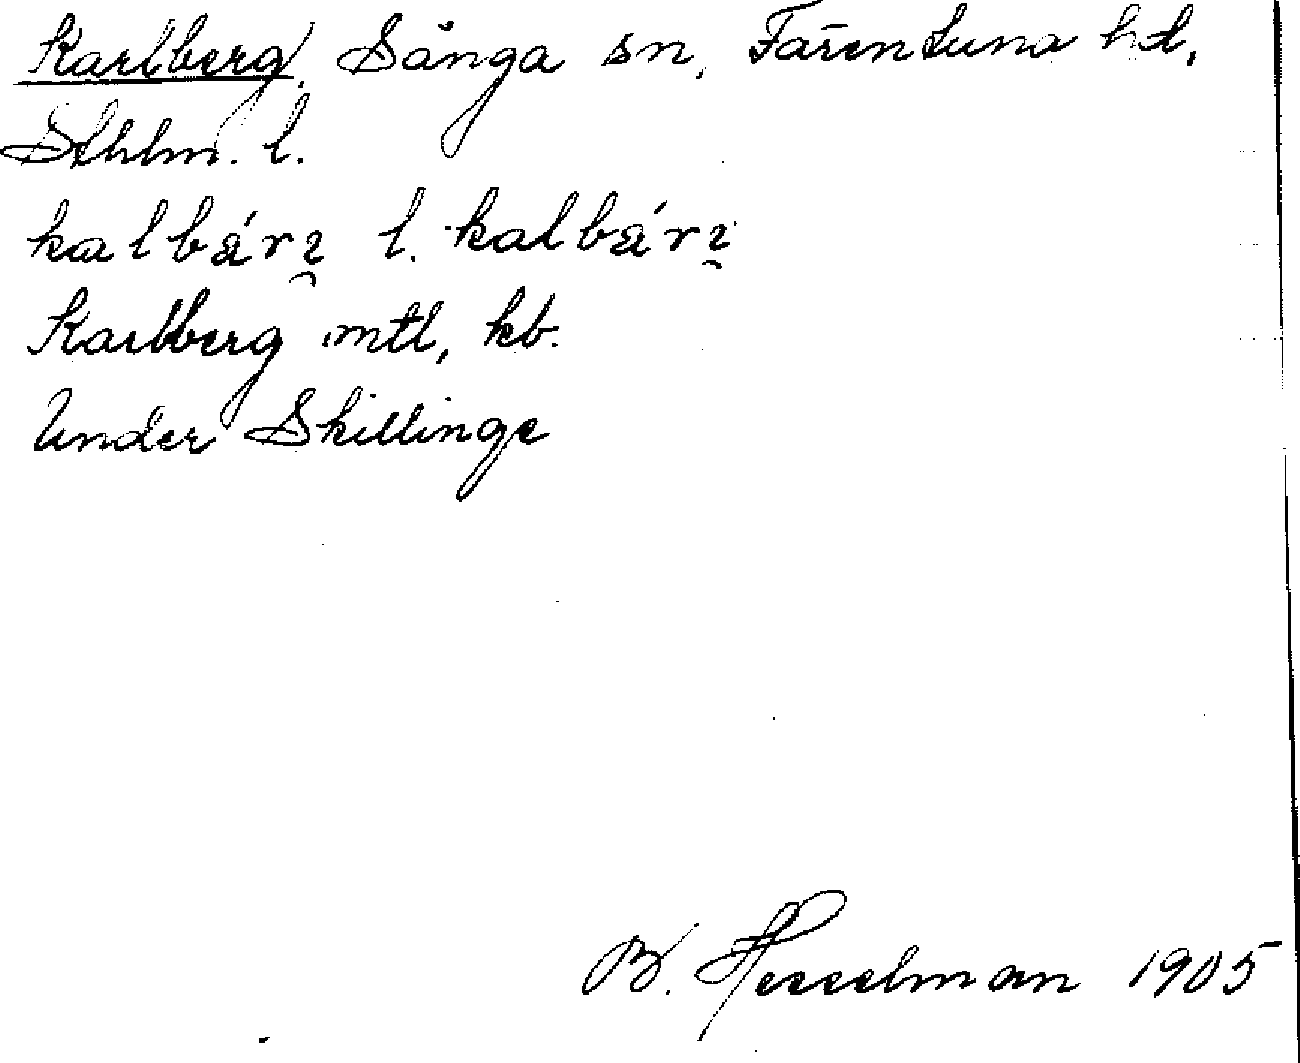 Karlberg, Sånga sn, Färentuna hd,
Sthlm. l.
l.
Karlberg mtl, kb.
Under Skillinge
B. Hesselman 1905